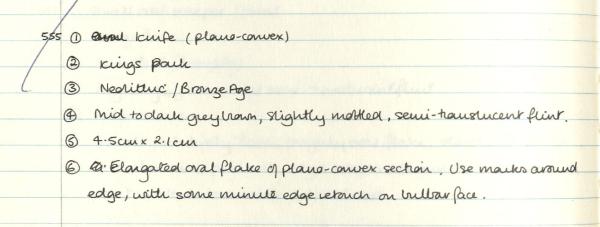 555 ① Knife (plano-convex)
② Kings Park
③ Neolithic / Bronze Age
④ Mid to dark grey brown, slightly mottled, semi-translucent flint.
⑤ 4.5cm x 2.1cm
⑥ Elongated oval flake of plano-convex section. Use marks around
edge, with some minute edge retouch on bulbar face.